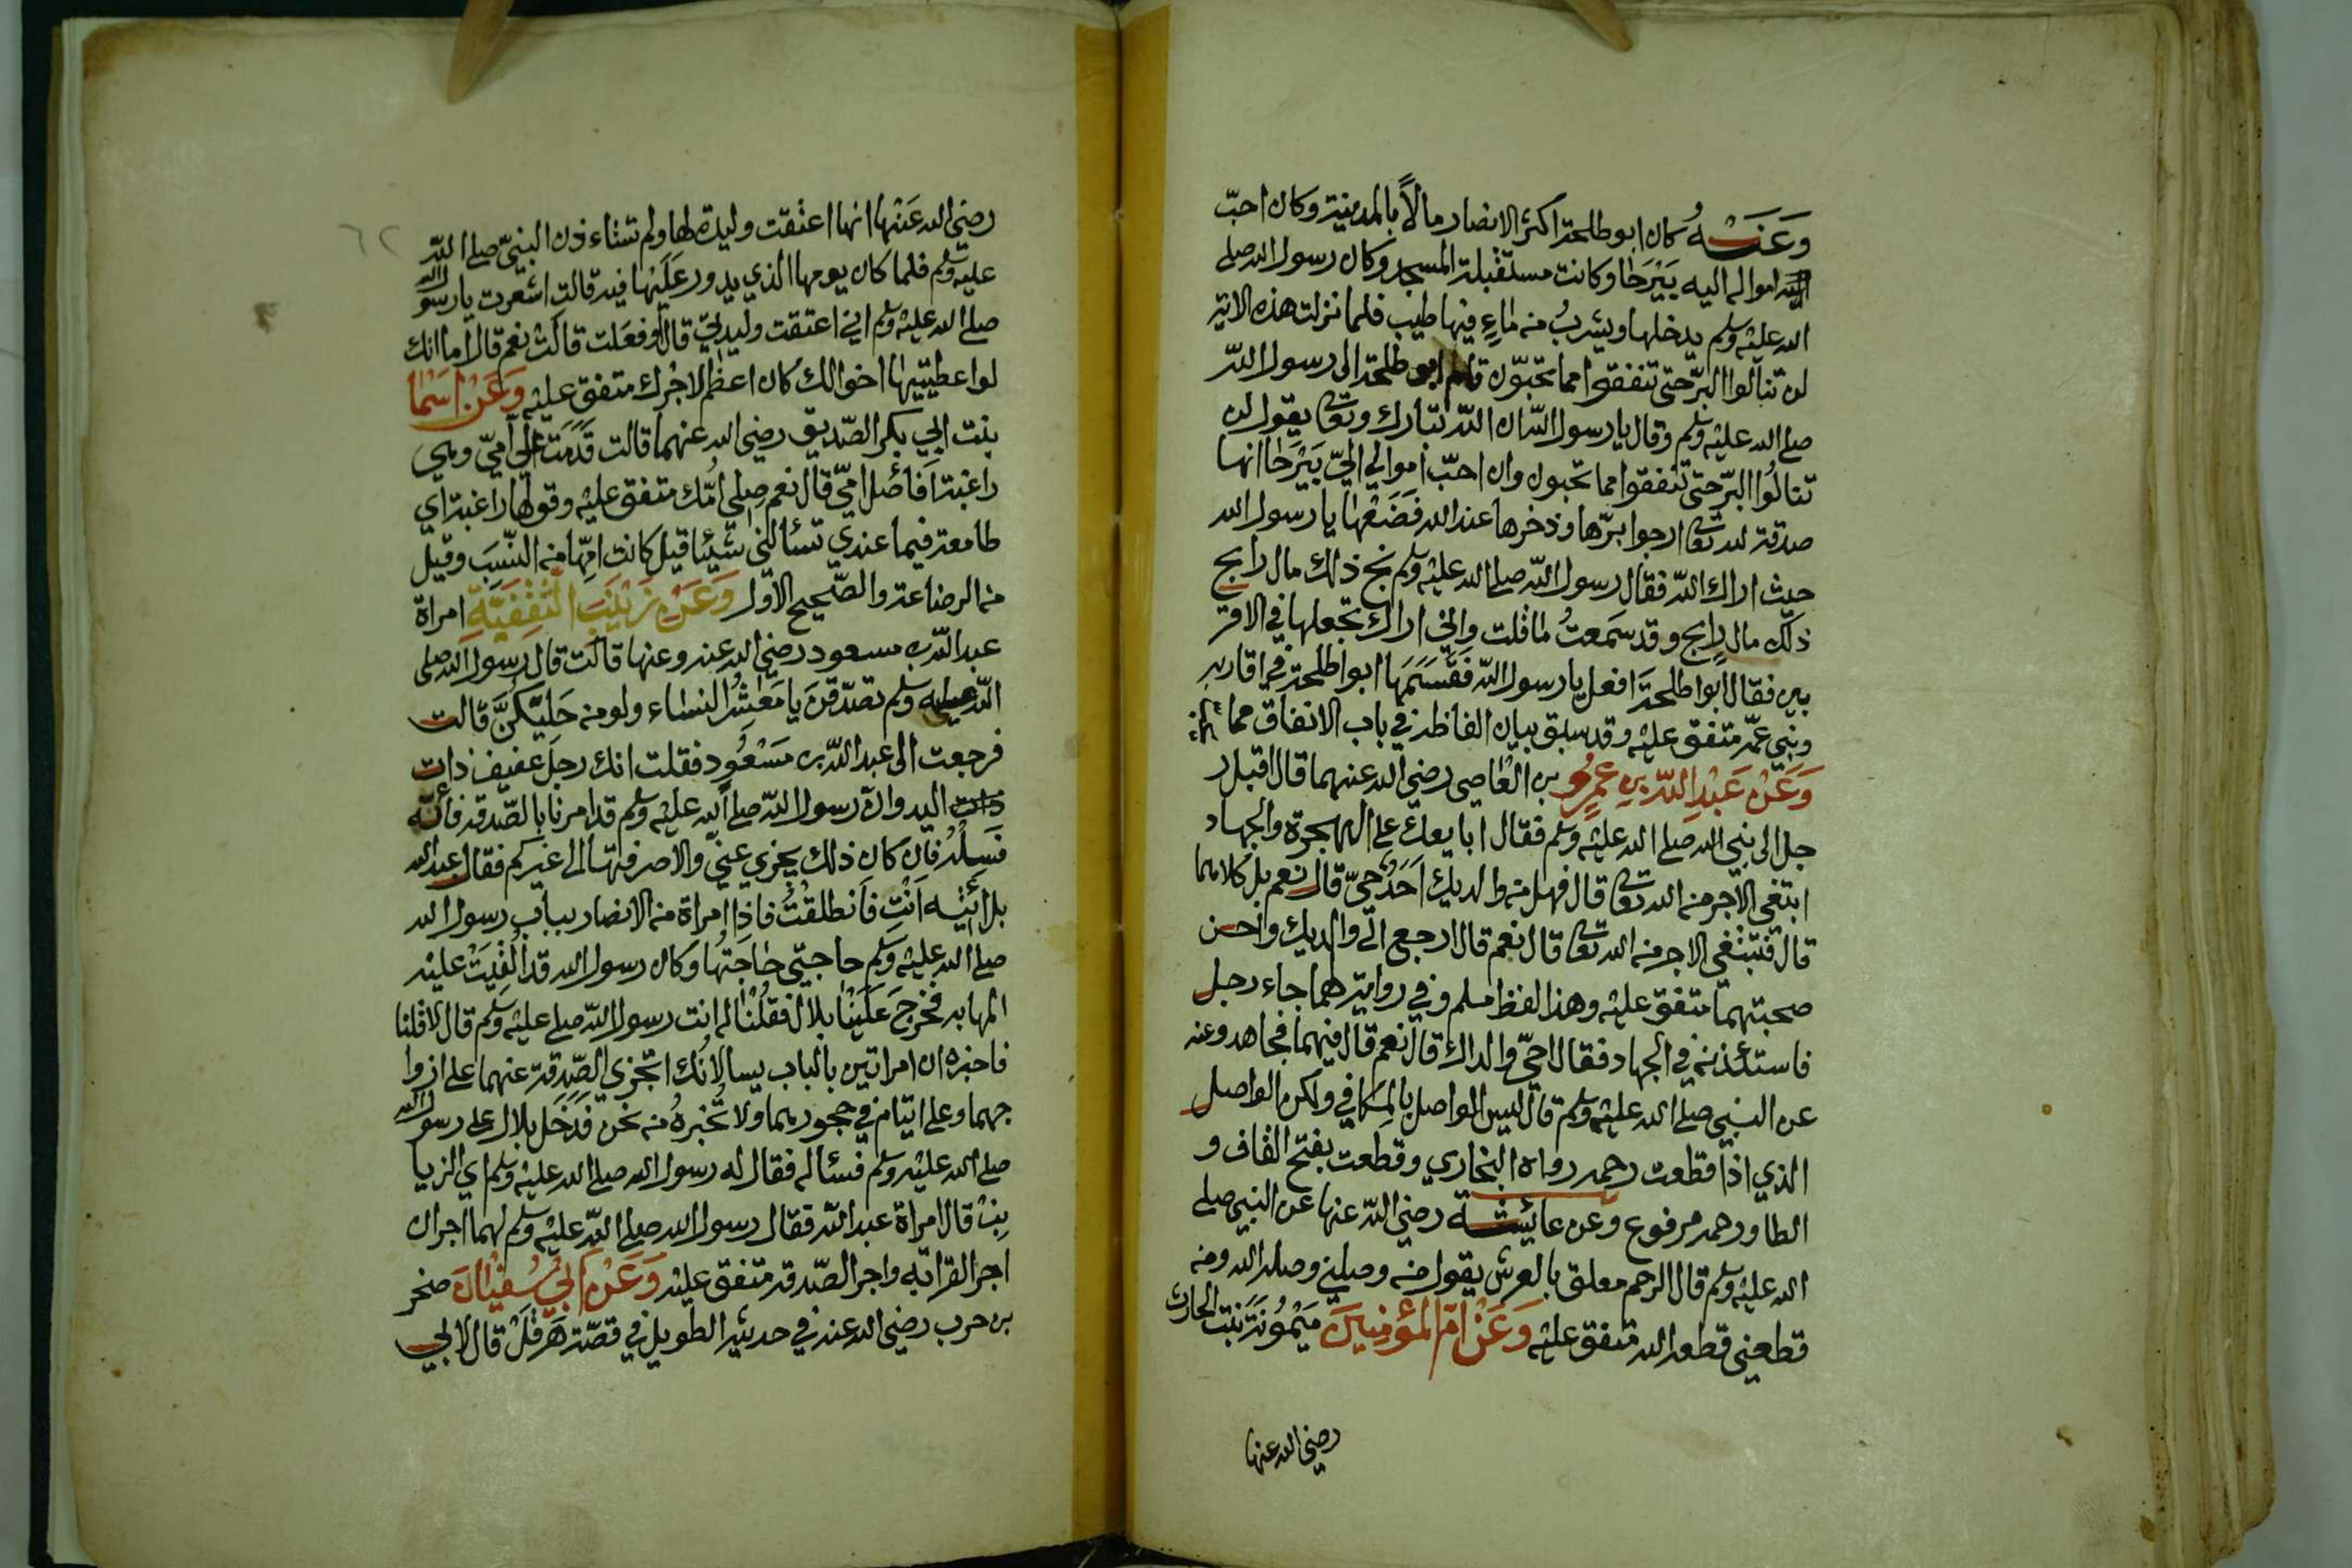 وَعَنْهُ كان ابو طلحة اكثر الانصار مالاً بالمدينة وكان احبّ
امواله اليه بَيْرَحَا وكانت مستقبلة المسجد وكان رسول الله صلى
الله عليه وسلم يدخلها ويشربُ من ماءٍ فيها طيب فلما نزلت هذه الاية
لن تنالوا البرّ حتى تنفقوا مما تحبّون قام ابو طلحة الى رسول اللّه
صلى الله عليه وسلم وقال يا رسول اللّه ان اللّه تبارك وتعا يقول لن
تنالُوا البرّ حتى تنفقوا مما تحبون وان احبّ اموالي اليّ بَيْرَحَا انها
صدقة لله تعا ارجوا برّها وذخرها عند الله فَضَعْهَا يا رسول الله
حيث اراك اللّه فقال رسول اللّه صلى الله عليه وسلم بخ ذلك مال رابح
ذلك مال رابح وقد سَمعتُ ما قلت واني اراك تجعلها في الاقر
بين فقال ابوا طلحة افعل يا رسول اللّه فَقَسَمَهَا ابوا طلحة في اقاربه
وبني عمّه متفق عليه وقد سبق بيان الفاظه في باب الانفاق مما
وَعَنْ عَبْدِ اللّه بنِ عمرو بن العاصى رضي الله عنهما قال اقبل ر
جل الى نبي الله صلى الله عليه وسلم فقال ابايعك على الهجرة والجهاد
ابتغي الاجر من الله تعا قال فهل من والديك اَحَدٌ حيّ قال نعم بل كلاهما
قال فتبتغي الاجر من الله تعا قال نعم قال ارجع الى والديك واحسن
صحبتهما متفق عليه وهذا لفظ مسلم وفي رواية لهما جاء رجل
فاستئذنه في الجهاد فقال احيّ والداك قال نعم قال ففيهما فجاهد وعنه
عن النبي صلى الله عليه وسلم قال ليس الواصل بالمكافي ولكن الواصل
الذي اذا قطعت رحمه رواه البخاري وقطعت بفتح القاف و
الطا ورحمه مرفوع وعن عائشة رضي اللّه عنها عن النبي صلى
الله عليه وسلم قال الرحم معلق بالعرش يقول من وصلني وصله الله ومن
قطعني قطعه الله متفق عليه وَعَنْ امّ المؤمنِين مَيْمُونَة بنت الحارث
رضي الله عنها
٦٢
رضي الله عَنْها انها اعتقت وليدة لها ولم تستاءذن النبيّ صلى اللّه
عليه وسلم فلما كان يومها الذي يدور عَلَيْها فيه قالت اشعرت يا رسول الله
صلى الله عليه وسلم اني اعتقت وليدتي قال اوفعَلت قالتْ نعم قال اما انك
لو اعطيتيها اخوالك كان اعظم لاجْرك متفق عليه وَعَنْ اسْما
بنت ابي بكر الصّديق رضي الله عنهما قالت قَدِمَتْ الي اميّ وهي
راغبة اَفَأصل اميّ قال نعم صلي اُمّك متفق عليه وقولها راغبة اي
طامعة فيما عندي تسألني شيئا قيل كانت امّها من النّسَبَ وقيل
من الرضاعة والصّحيح الاوّل وَعَنْ زَيْنَبَ الثَّقَفِيَّةِ امراة
عبد اللّه بن مسعود رضي الله عنه وعنها قالَت قال رسول الله صلى
اللّه عليه وسلم تصدّقنَ يا مَعْشَرُ النساء ولو من حَليّكُنَّ قالت
فرجعت الى عبد اللّه بن مَسْعُود فقلت انك رجل خفيف ذات
ذات اليد وانّ رسول اللّه صلى الله عليه وسلم قد امرنا بالصّدقة فأتِه
فَسَلْهُ فان كان ذلك يجزي عنيّ والا صرفتها الى غيركم فقال عبد الله
بل ائتيه اَنْتِ فاَنطلقْتُ فاذا امراة من الانصار بباب رسول الله
صلى الله عليه وسلم حاجتي حَاجَتُها وكان رسول الله قد اُلْقِيَتْ عليه
المهابه فخرجَ عَلَيْنا بلال فقلْنا له ائت رسول اللّه صلى عليه وسلم قال لا قلنا
فاخبره ان امراتين بالباب يسالانك اتجزي الصّدِقة عنهما على ازوا
جهما وعلى ايتام في حجورهما ولا تُخبرهُ من نحن فَدَخَل بلال على رسول الله
صلى الله عليه وسلم فسئاله فقال له رسول الله صلى الله عليه وسلم اي الزيا
نب قال امراة عبد اللّه فقال رسول الله صلى اللّه عليه وسلم لهما اجران
اجر القرابه واجر الصّدقة متفق عليه وَعَنْ اَبي سُفيان صخر
بن حرب رضي الله عنه في حديثه الطويل في قصّة هَرقْلَ قال لابي